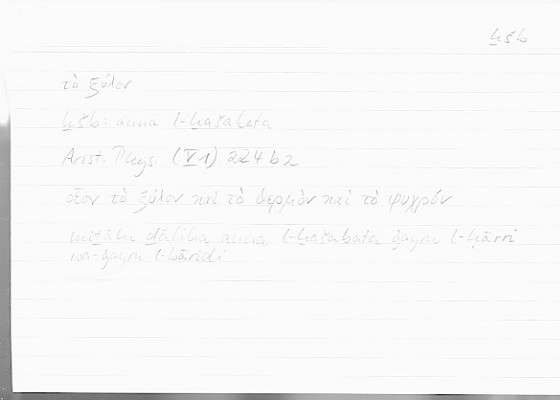 ḫšb
τὸ ξύλον
ḫšb: anna l-ḫašabata
Arist. Phys. (V 1) 224 b 2
οἷον τὸ ξύλον καὶ τὸ θερμὸν καὶ τὸ ψυχρόν
miṯālu ḏālika anna l-ḫašabata ġayru l-ḥārri
wa-ġayru l-bāridi